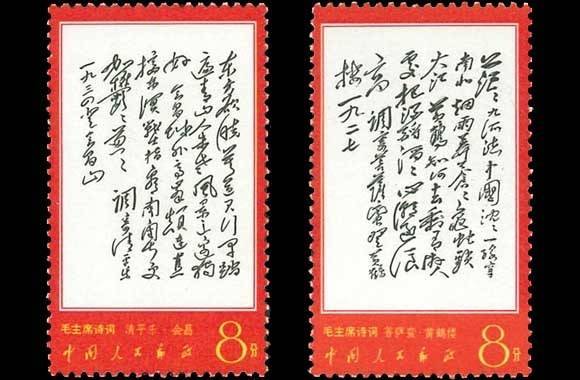 东方欲晓莫道君行早踏
遍青山人未老风景这边独
好会昌城外高峰颠连直
接东溟战士指看南粤更
加郁郁葱葱 调寄清平乐
一九三四年登会昌山
毛主席诗词 清平乐·会昌
中国人民邮政
8分
茫茫九派流中国沉沉一线穿
南北烟雨莽苍苍龟蛇锁
大江黄鹤知何去剩有游人
处把酒酹滔滔心潮逐浪
高 调寄菩萨蛮登黄鹤
楼 一九二七
毛主席诗词 菩萨蛮·黄鹤楼
中国人民邮政
8分